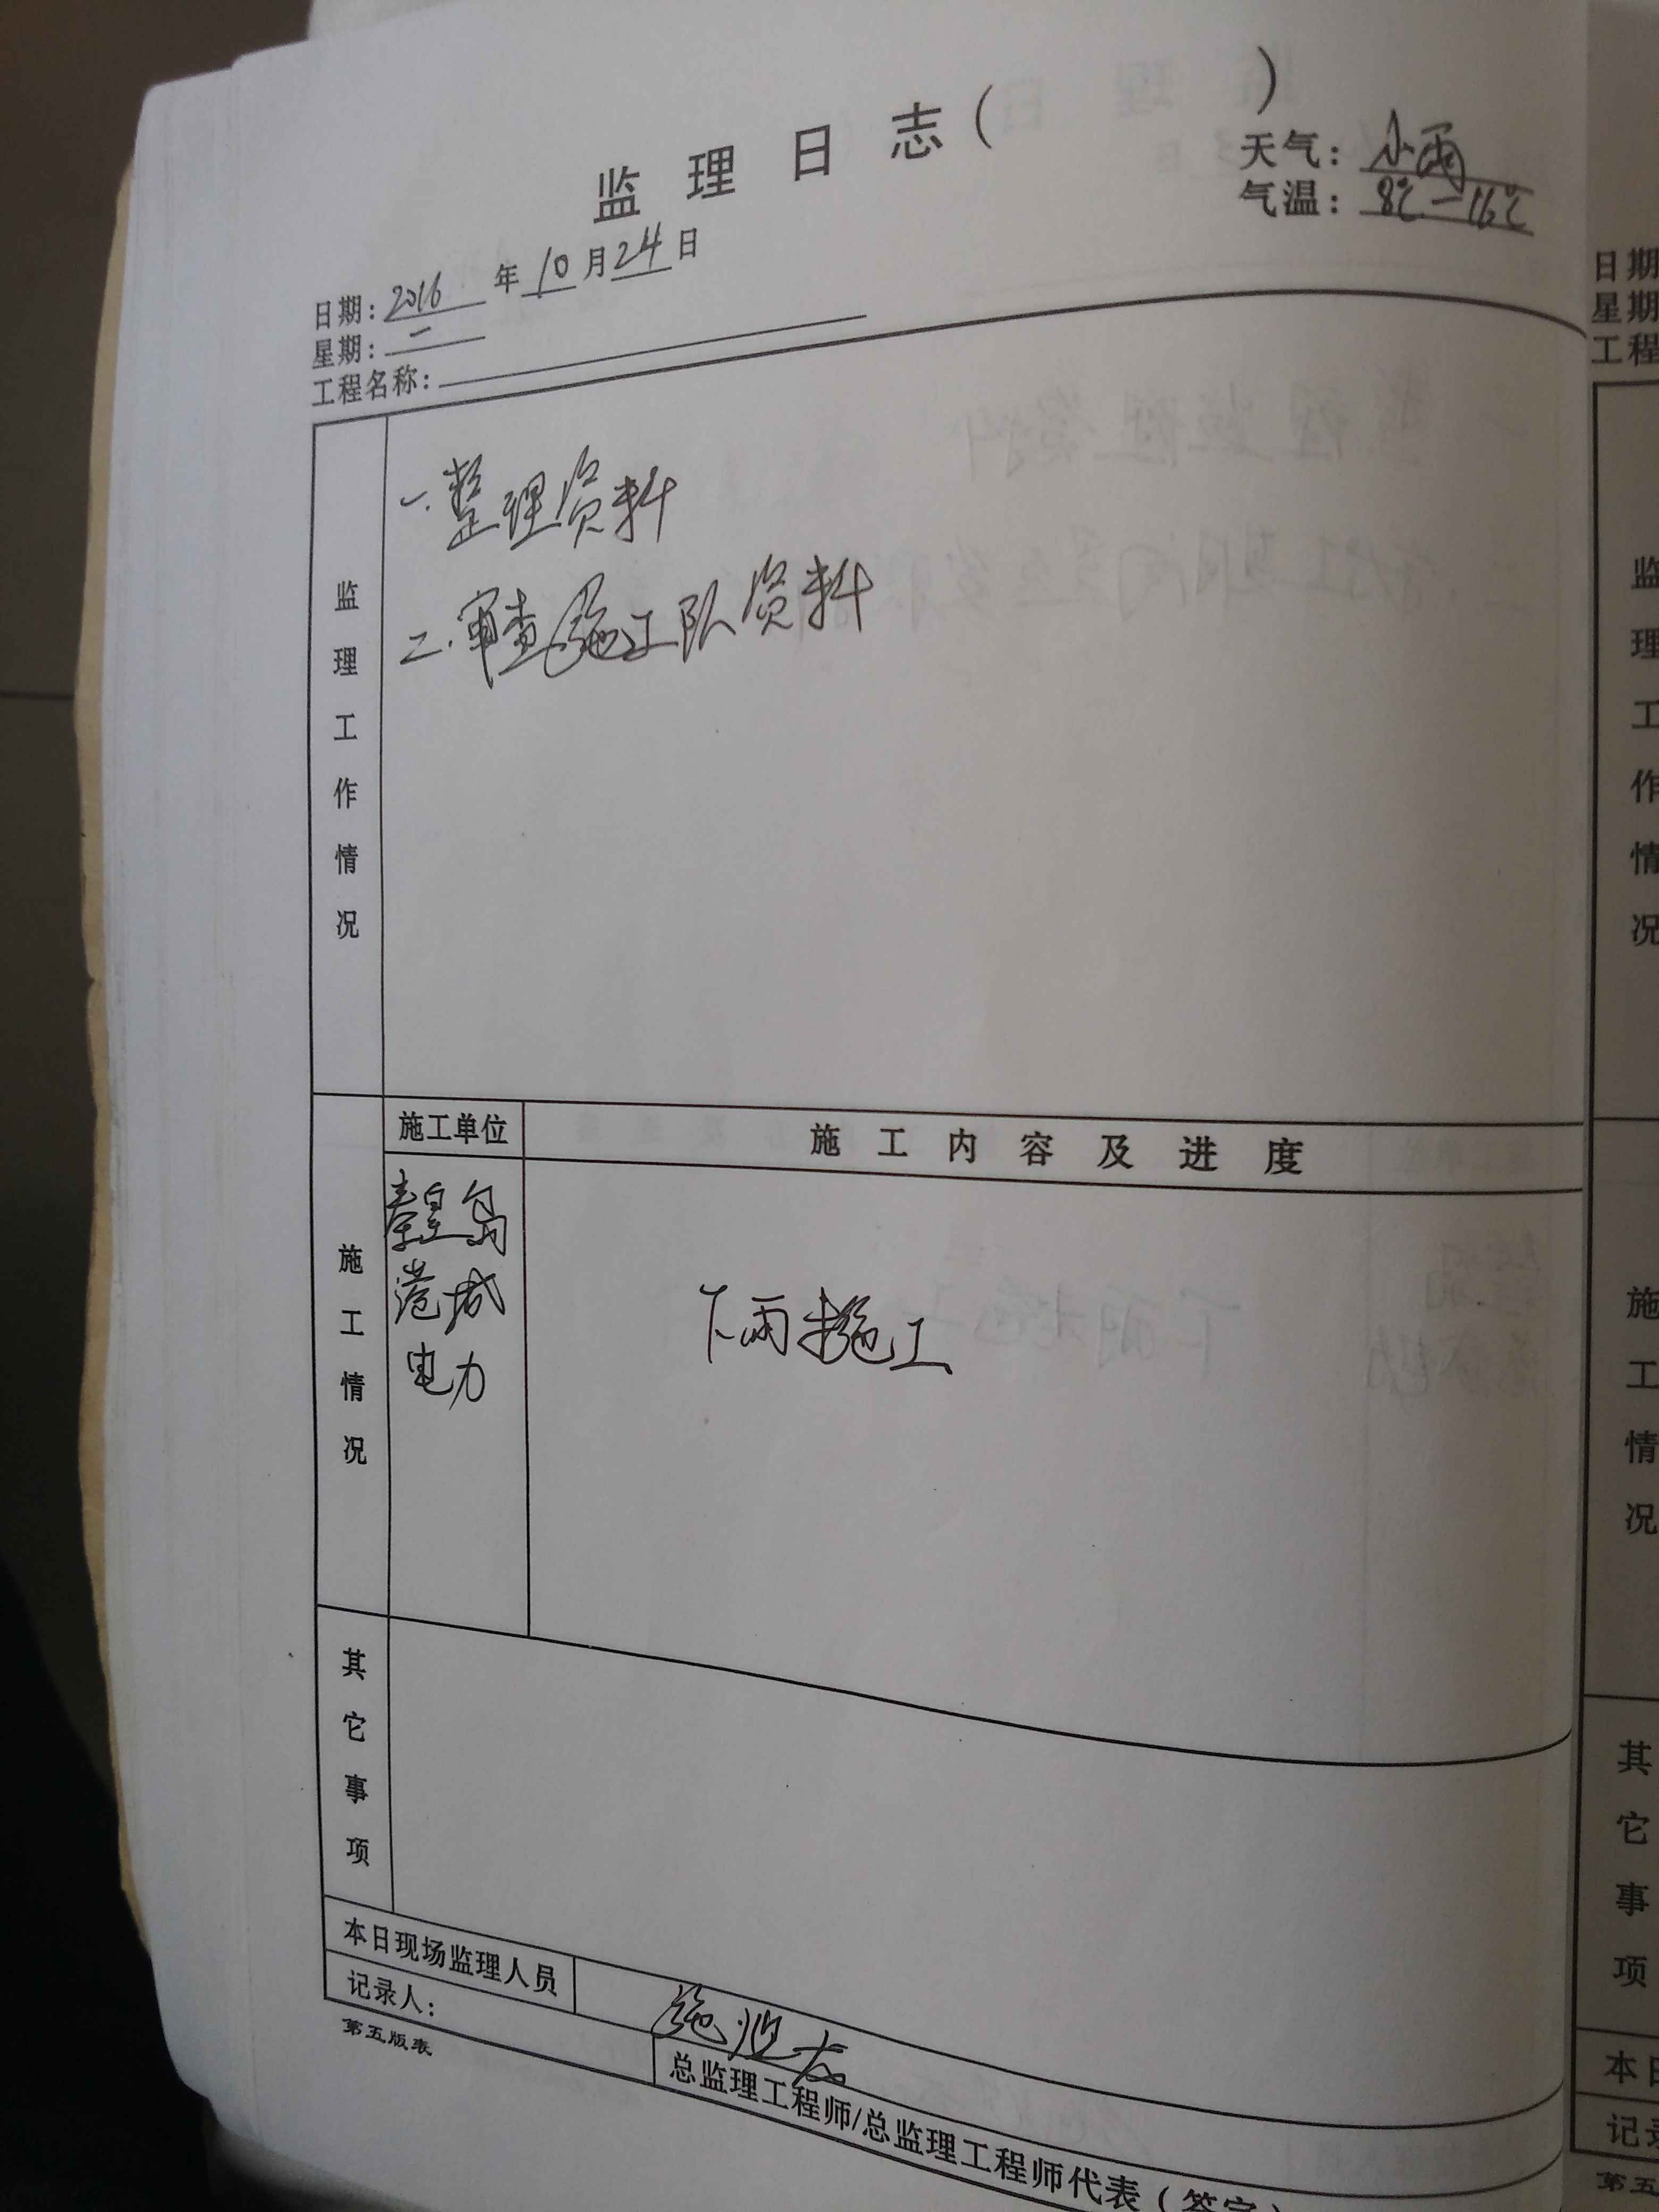 监理日志（ ）
天气：小雨
气温：8℃－16℃
日期：2016年10月24日
星期：一
工程名称：
监理工作情况
一.整理资料
二.审查施工队资料
施工情况
施工单位
施工内容及进度
秦皇岛
港城
电力
下雨未施工
其它事项
本日现场监理人员
记录人：
总监理工程师/总监理工程师代表（签字）
第五版表
日期
星期
工程
监理工作情况
施工情况
其它事项
本日
记录
第五